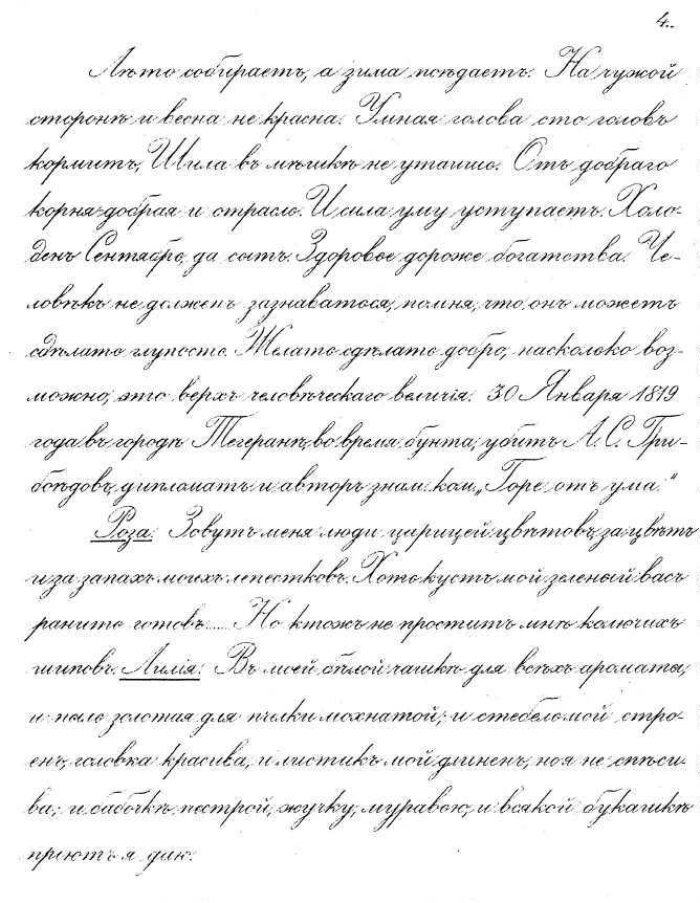 4.
Лѣто собираетъ, а зима поѣдаетъ. На чужой
сторонѣ и весна не красна. Умная голова сто головъ
кормитъ, Шила въ мѣшкѣ не утаишь. Отъ добраго
корня-добрая и отрасль. И сила уму уступаетъ. Холо-
денъ Сентябрь, да сытъ. Здоровье дороже богатства. Че-
ловѣкъ не долженъ зазнаваться, помня, что онъ можетъ
сдѣлать глупость. Желать сдѣлать добро, насколько воз-
можно, это верхъ человѣческаго величія. 30 Января 1819
года въ городѣ Тегеранѣ, во время бунта, убитъ А. С. Гри-
боѣдовъ, дипломатъ и авторъ знам. ком. „Горе отъ ума.“
Роза: Зовутъ меня люди царицей цвѣтовъ, за цвѣтъ
и за запахъ моихъ лепестковъ. Хоть кустъ мой зеленый васъ
ранить готовъ..... Но ктожъ не проститъ мнѣ колючихъ
шиповъ. Лилія: Въ моей бѣлой чашкѣ для всѣхъ ароматы,
и пыль золотая для пчелки мохнатой; и стебель мой стро-
енъ, головка красива, и листикъ мой длиненъ, но я не спѣси-
ва; и бабочкѣ пестрой, жучку, муравью, и всякой букашкѣ
пріютъ я даю.